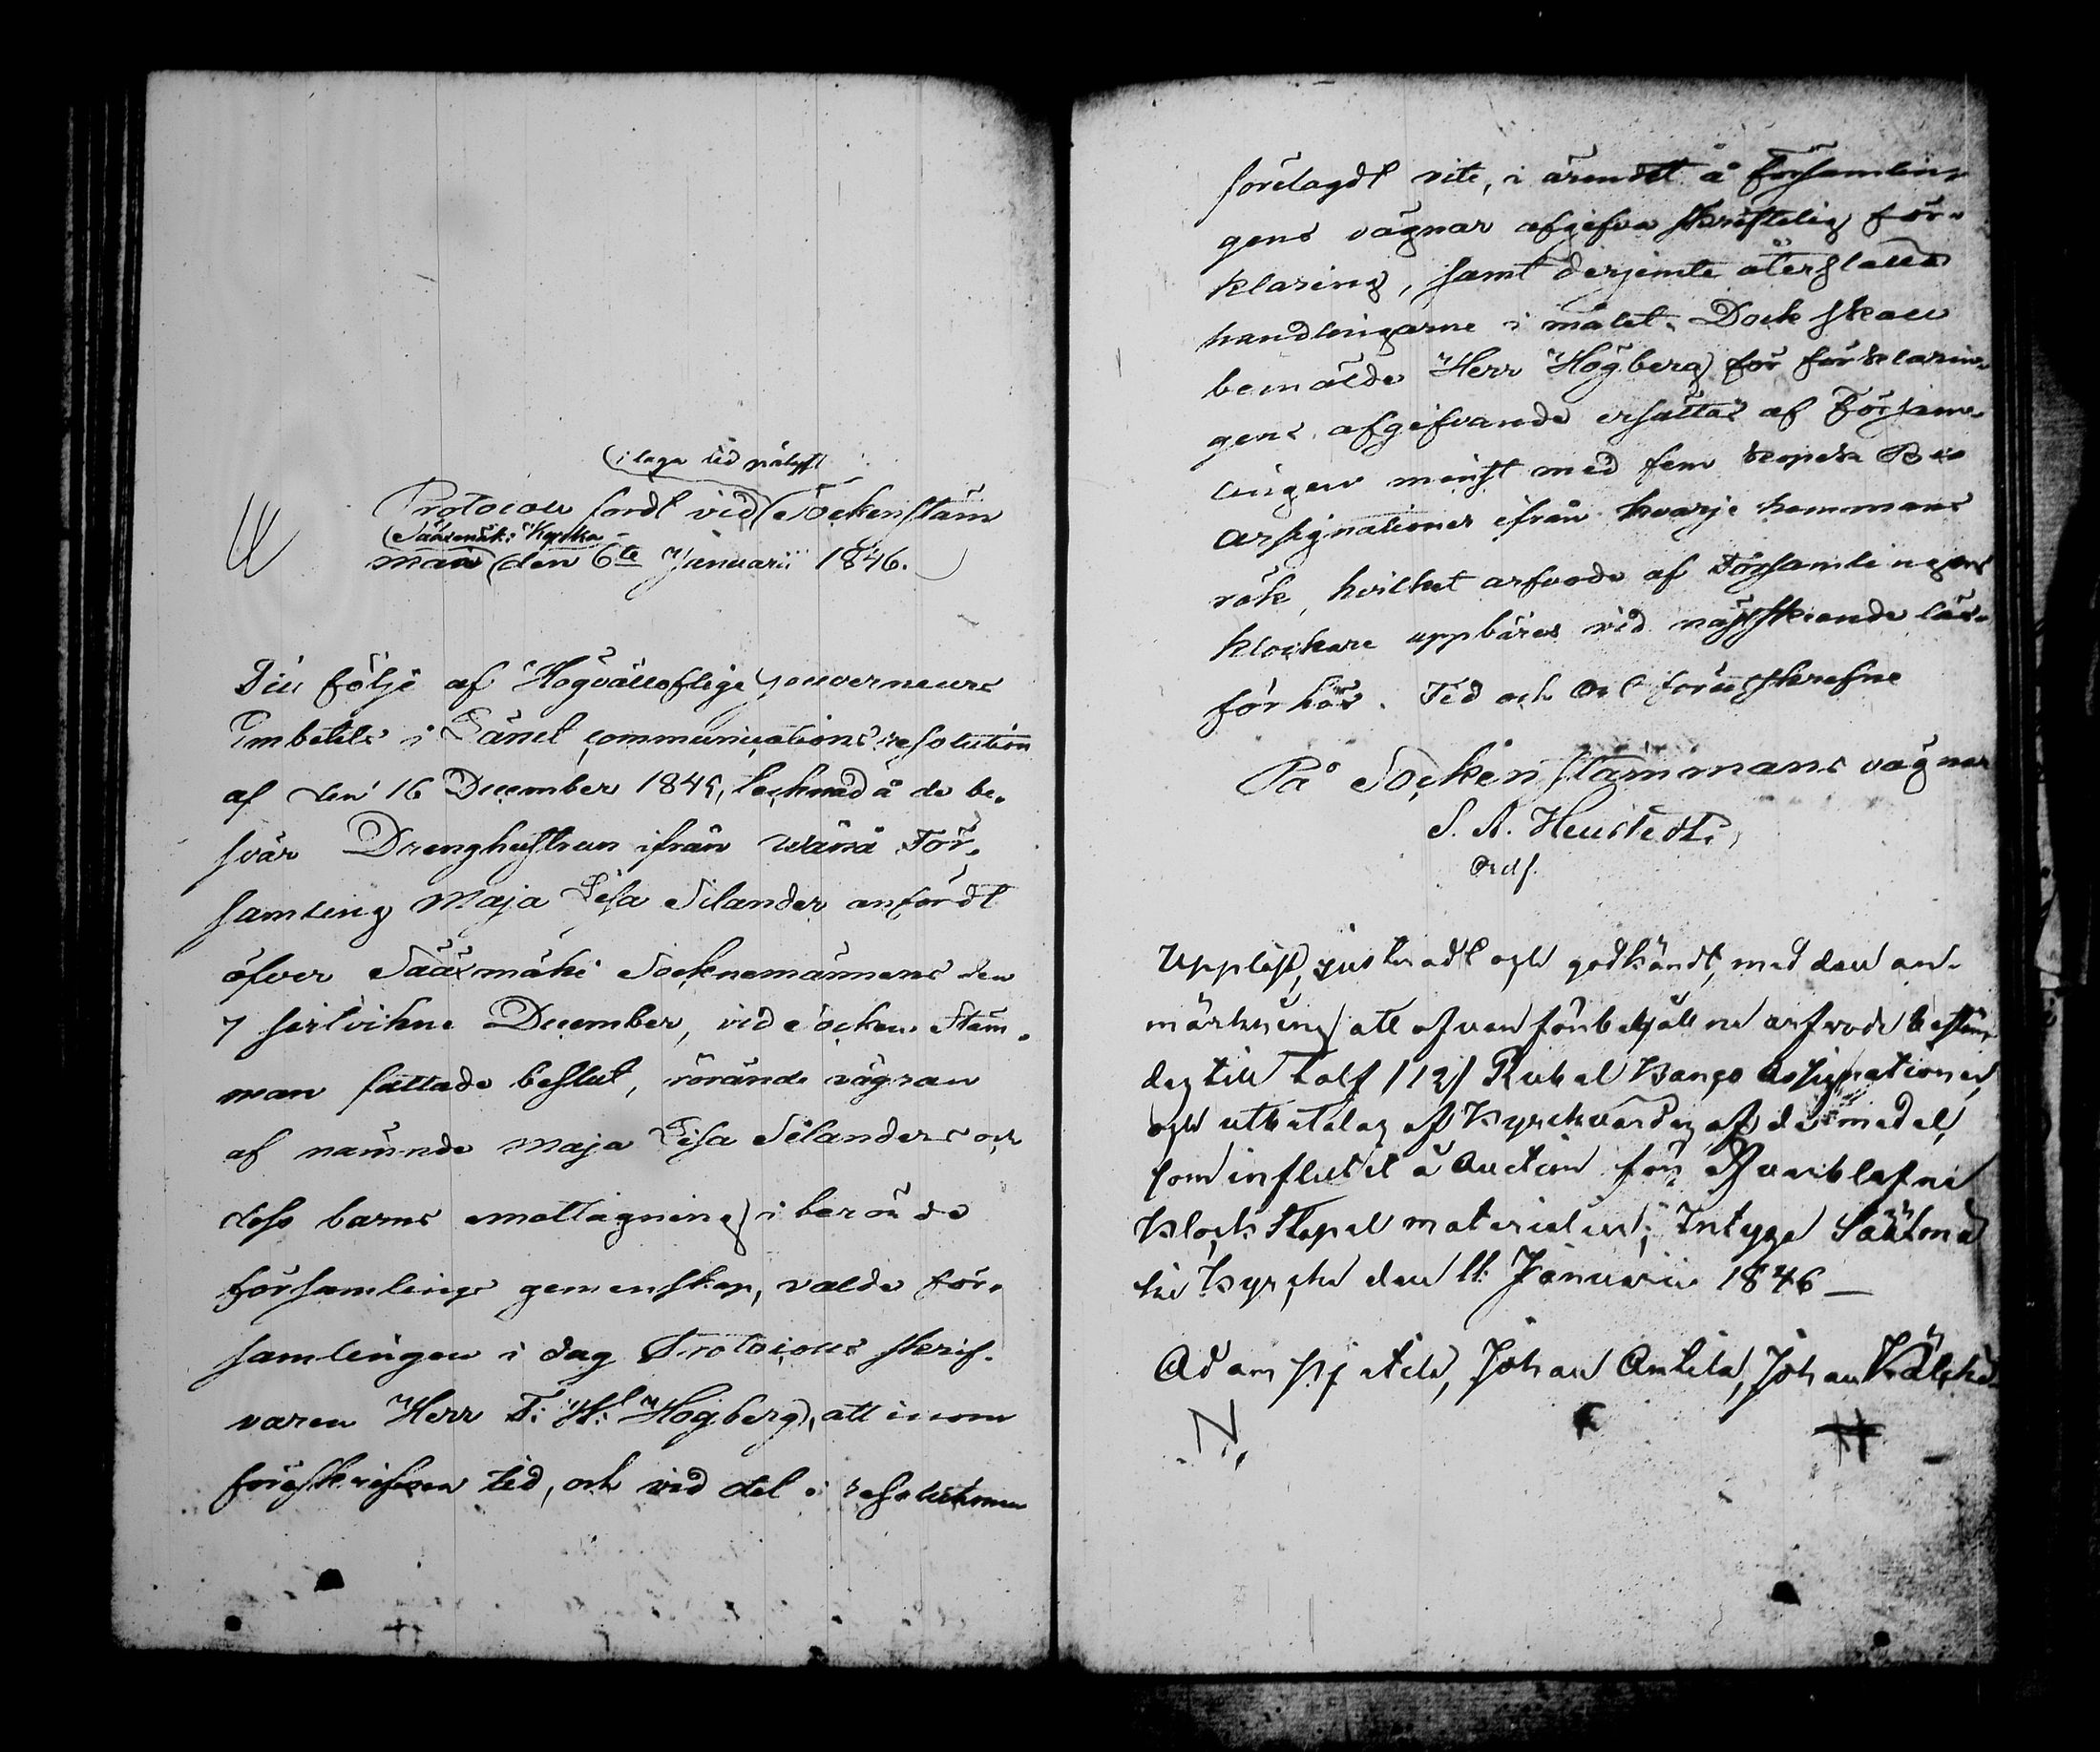 (i laga tid pålyst
Protocoll fördt vid Sockenstäm
Sääxmäki Kyrka
man den 6te Januarii 1846.
Till följe af Högvällofliga Gouverneurs
Embetets i Länet communications resolution
af den 16 December 1845, tecknad å de be-
svär Drenghustrun ifrån Wånå För-
samling Maja Lisa Silander anfördt
öfver Sääxmäki Socknemännens den
7 sistvikne December, vid Socken Stäm-
man fattade beslut, rörande vägran
af nämnde Maja Lisa Silanders och
dess barns emottagning i berörde
församlings gemenskap, valde för-
samlingen i dag Protocolls skrif-
varen Herr F: H: Högberg, att inom
föreskrifven tid, och vid det i resolutionen
förelagdt vite, i ärendet å Församlin-
gens vägnar afgifva skriftelig för-
klaring, samt derjemte återställa
handlingarne i målet. Dock skall
bemälde Herr Högberg för förklarin-
gens afgifvande ersättas af Försam-
lingen minst med fem kopek Bco
assignationer ifrån hvarje hemmans
rök, hvilket arfvode af Församlingens
klockare uppbäres vid nästskeende läs-
förhör. Tid och Ort förutskrefne
På Sockenstämmans vägnar
S. A.
Ordf.
Uppläst, justeradt och godkändt, med den an-
märkning att ofvan förbehållne arfvode bestäm-
des till tolf /12/ Rubel Banco Assignationer,
och utbetalas af Kyrckvärden af de medel,
som influtit å Auction för qvarblefne
Klockstapel materialier; Intyga Sääxmä
ki Kyrcka den 11 Januarii 1846 _
Adam Johan Anttila, Johan
N
H